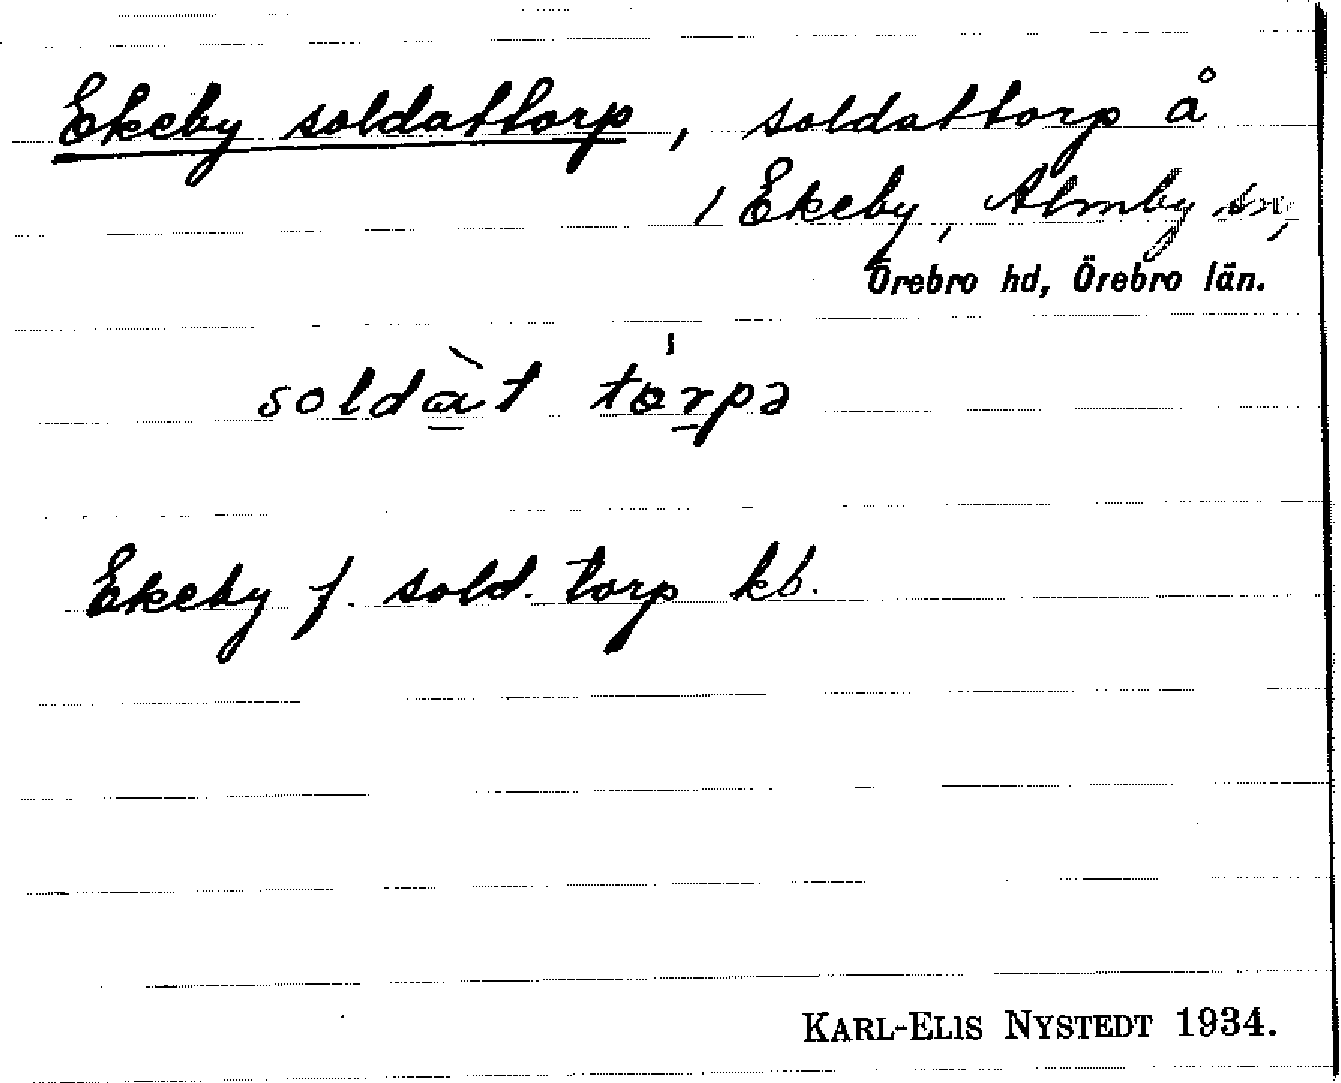 Ekeby soldattorp, soldattorp å
1 Ekeby, Almby sn,
Örebro hd, Örebro län.
soldàt tɵrpə
Ekeby f. sold. torp kb.
KARL-ELIS NYSTEDT 1934.